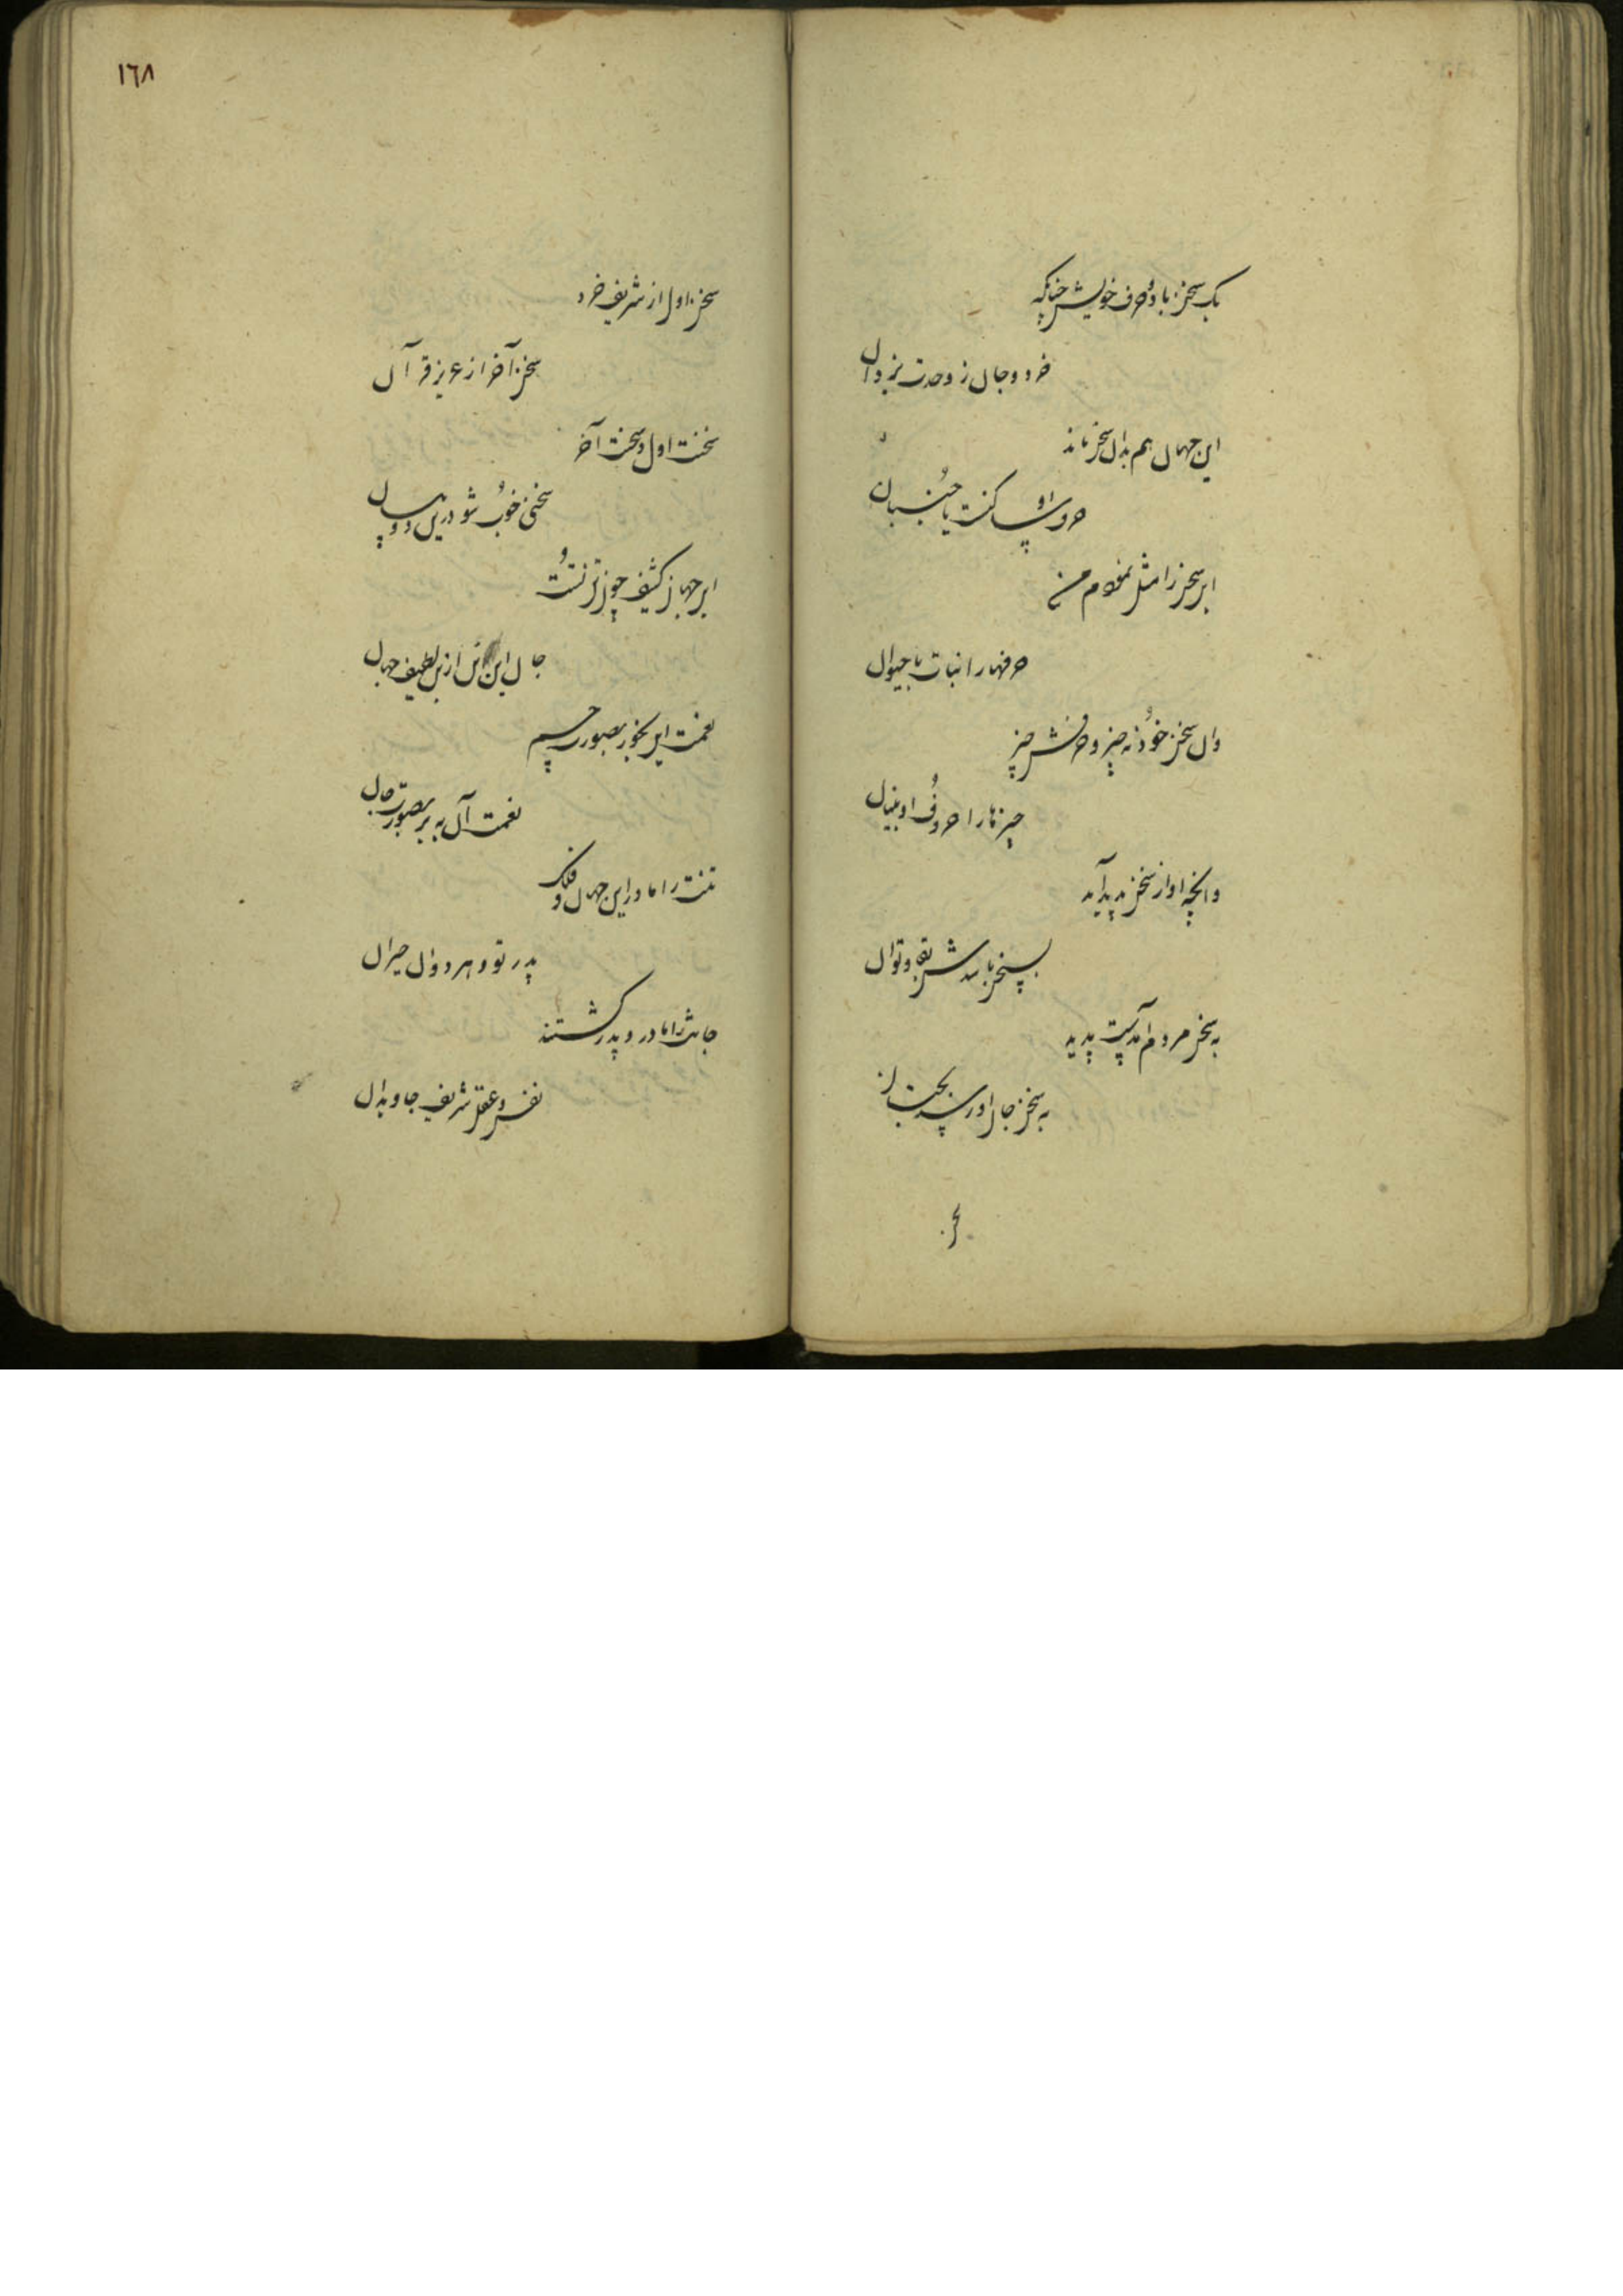 یک سخن با دو حرف خویش چنانکه
خرد و جان ز وحدت یزدان
این جهان هم بدان سخن ماند
حروفش نبات با حیوان
این سخن را مثل نمودم من
حرفها را نبات با حیوان
وان سخن خود نه چیز و حرفش چیز
چیزها را حروف او بنیان
وانچه او از سخن پدید آید
بسخن باشدش بقا و توان
به سخن مردم آمدست پدید
به سخن جان او رسد بجنان
سخن
١٦٨
سخن اول از شریف خرد
سخن آخر از عزیز قرآن
سخنت اول و سخنت آخر
سخنی خوب شو درین دو میان
این جهان کثیف چون تن تست
جان این تن ازین لطیف جهان
نعمت این بخور بصورت جسم
نعمت آن ببر بصورت جان
تنت را مادر این جهان و فلک
پدر تو و هر دوان حیران
جانت را مادر و پدر گشتند
نفس و عقل شریف جاویدان